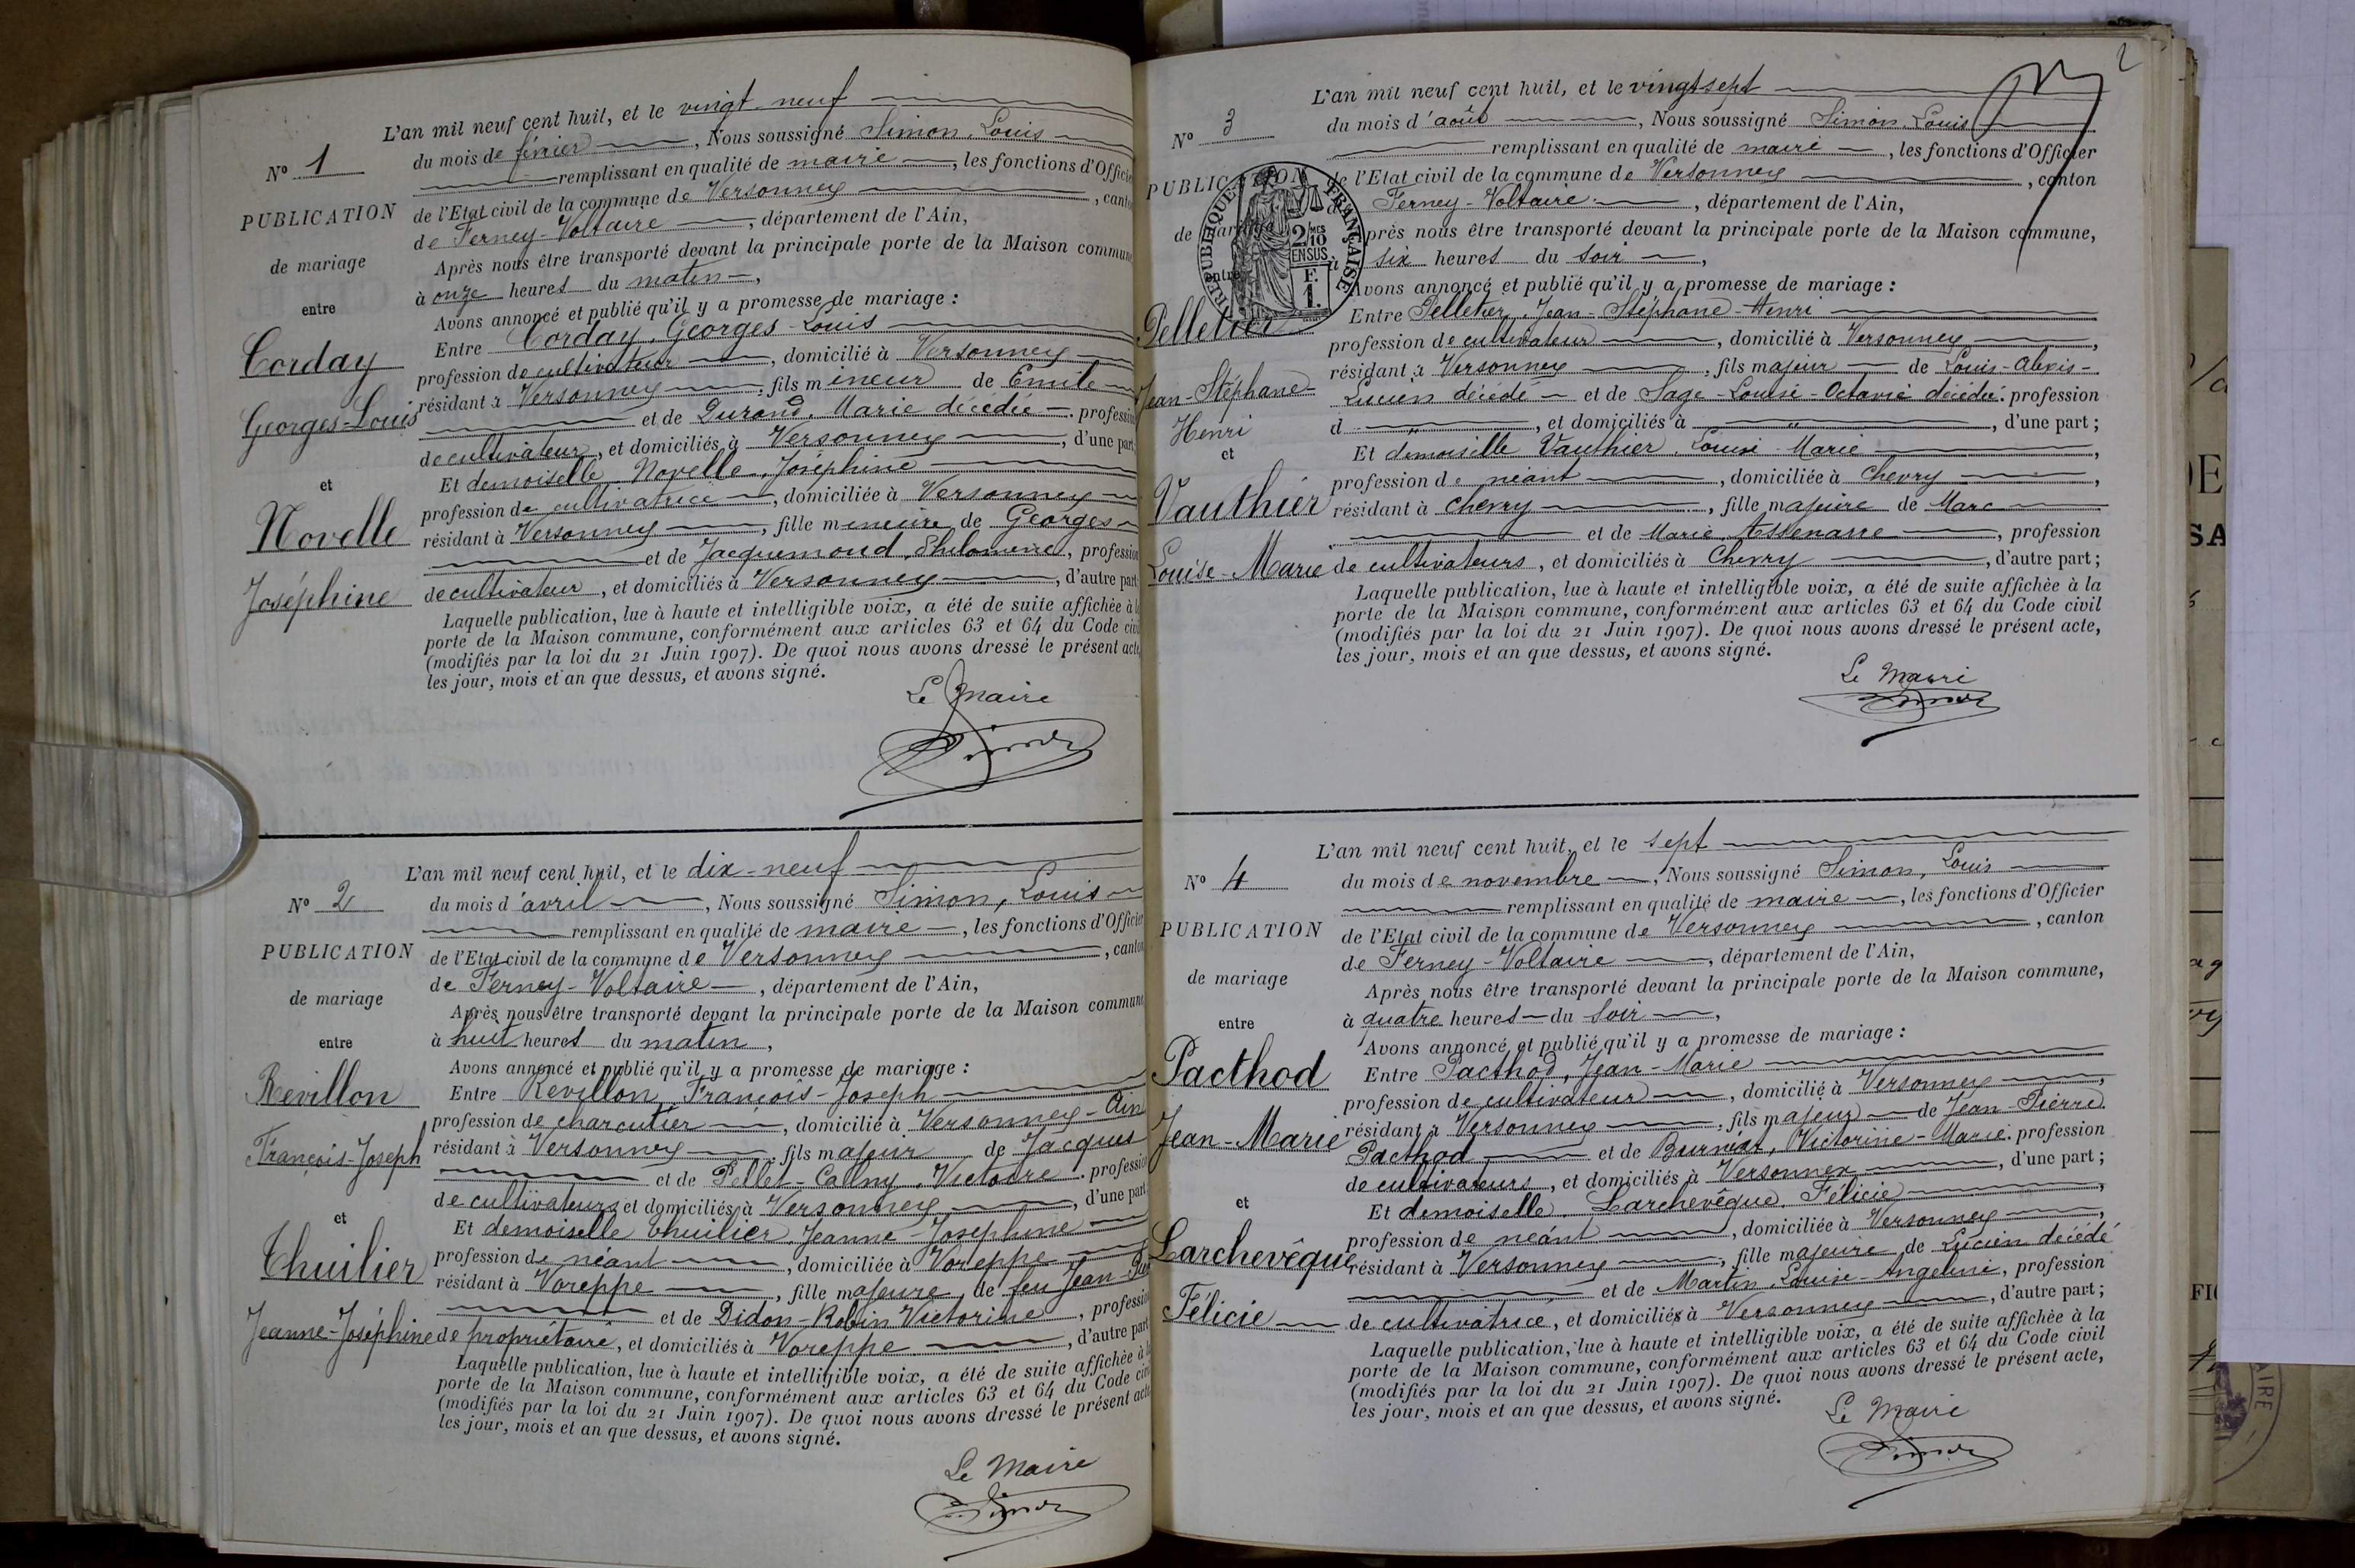 L'an mil neuf cent huit, et le vingt-neuf
N° 1
du mois de février, Nous soussigné Simon, Louis
remplissant en qualité de maire, les fonctions d'Officier
PUBLICATION
de l'Etat civil de la commune de Versonnex, canton
de Ferney-Voltaire, département de l'Ain,
de mariage
Après nous être transporté devant la principale porte de la Maison commune
à onze heures du matin,
entre
Avons annoncé et publié qu'il y a promesse de mariage :
Corday
Entre Corday, Georges-Louis
profession de cultivateur, domicilié à Versonnex
Georges-Louis
résidant à Versonnex, fils mineur de Emile
et de Durand, Marie décédée, profession
de cultivateur, et domiciliés à Versonnex, d'une part;
et
Et demoiselle Novelle, Joséphine
profession de cultivatrice, domiciliée à Versonnex
Novelle
résidant à Versonnex, fille mineure de Georges
et de Jacquemoud, Philomène, profession
Joséphine
de cultivateur, et domiciliés à Versonnex, d'autre part
Laquelle publication, lue à haute et intelligible voix, a été de suite affichée à la
porte de la Maison commune, conformément aux articles 63 et 64 du Code civil
(modifiés par la loi du 21 Juin 1907). De quoi nous avons dressé le présent acte,
les jour, mois et an que dessus, et avons signé.
Le Maire
Simon
L'an mil neuf cent huit, et le dix-neuf
N° 2
du mois d'avril, Nous soussigné Simon, Louis
remplissant en qualité de maire, les fonctions d'Officier
PUBLICATION
de l'Etat civil de la commune de Versonnex, canton
de Ferney-Voltaire, département de l'Ain,
de mariage
Après nous être transporté devant la principale porte de la Maison commune
entre
à huit heures du matin,
Avons annoncé et publié qu'il y a promesse de mariage :
Revillon
Entre Revillon, François-Joseph
profession de charcutier, domicilié à Versonnex-Ain
François-Joseph
résidant à Versonnex, fils majeur de Jacques
et de Pellet-Calmy, Victoire, profession
de cultivateurs et domiciliés à Versonnex, d'une part
et
Et demoiselle Thuilier, Jeanne-Joséphine
Thuilier
profession de néant, domiciliée à Voreppe
résidant à Voreppe, fille majeure de feu Jean-
et de Didon-Robin Victorine, profession
Jeanne-Joséphine
de propriétaire, et domiciliés à Voreppe, d'autre part
Laquelle publication, lue à haute et intelligible voix, a été de suite affichée à la
porte de la Maison commune, conformément aux articles 63 et 64 du Code civil
(modifiés par la loi du 21 Juin 1907). De quoi nous avons dressé le présent acte
les jour, mois et an que dessus, et avons signé.
Le Maire
Simon
2
L'an mil neuf cent huit, et le vingt sept
N° 3
du mois d'août, Nous soussigné Simon, Louis
remplissant en qualité de maire, les fonctions d'Officier
PUBLICATION
de l'Etat civil de la commune de Versonnex, canton
de Ferney-Voltaire, département de l'Ain,
de mariage
Après nous être transporté devant la principale porte de la Maison commune,
à six heures du soir,
entre
REPUBLIQUE FRANÇAISE
2 MES 10 EN SUS
F. 1.
Avons annoncé et publié qu'il y a promesse de mariage :
Pelletier
Entre Pelletier, Jean-Stéphane-Henri
profession de cultivateur, domicilié à Versonnex,
Jean-Stéphane-
résidant à Versonnex, fils majeur de Louis-Alexis-
Lucien décédé et de Sage-Louise-Octavie décédée. profession
Henri
d " , et domiciliés à " , d'une part;
et
Et demoiselle Vauthier, Louise-Marie,
profession de néant, domiciliée à Chevry,
Vauthier
résidant à Chevry, fille majeure de Marc
et de Marie, profession
Louise-Marie
de cultivateurs, et domiciliés à Chevry, d'autre part;
Laquelle publication, lue à haute et intelligible voix, a été de suite affichée à la
porte de la Maison commune, conformément aux articles 63 et 64 du Code civil
(modifiés par la loi du 21 Juin 1907). De quoi nous avons dressé le présent acte,
les jour, mois et an que dessus, et avons signé.
Le Maire
Simon
L'an mil neuf cent huit, et le sept
N° 4
du mois de novembre, Nous soussigné Simon, Louis
remplissant en qualité de maire, les fonctions d'Officier
PUBLICATION
de l'Etat civil de la commune de Versonnex, canton
de Ferney-Voltaire, département de l'Ain,
de mariage
Après nous être transporté devant la principale porte de la Maison commune,
entre
à quatre heures du soir,
Avons annoncé et publié qu'il y a promesse de mariage :
Pacthod
Entre Pacthod, Jean-Marie
profession de cultivateur, domicilié à Versonnex,
Jean-Marie
résidant à Versonnex, fils majeur de Jean-Pierre
Pacthod et de Burniat, Victorine-Marie. profession
de cultivateurs, et domiciliés à Versonnex, d'une part;
et
Et demoiselle Larchevêque, Félicie,
profession de néant, domiciliée à Versonnex,
Larchevêque
résidant à Versonnex, fille majeure de Lucien décédé
et de Martin, Louise-Angeline, profession
Félicie
de cultivatrice, et domiciliés à Versonnex, d'autre part;
Laquelle publication, lue à haute et intelligible voix, a été de suite affichée à la
porte de la Maison commune, conformément aux articles 63 et 64 du Code civil
(modifiés par la loi du 21 Juin 1907). De quoi nous avons dressé le présent acte,
les jour, mois et an que dessus, et avons signé.
Le Maire
Simon